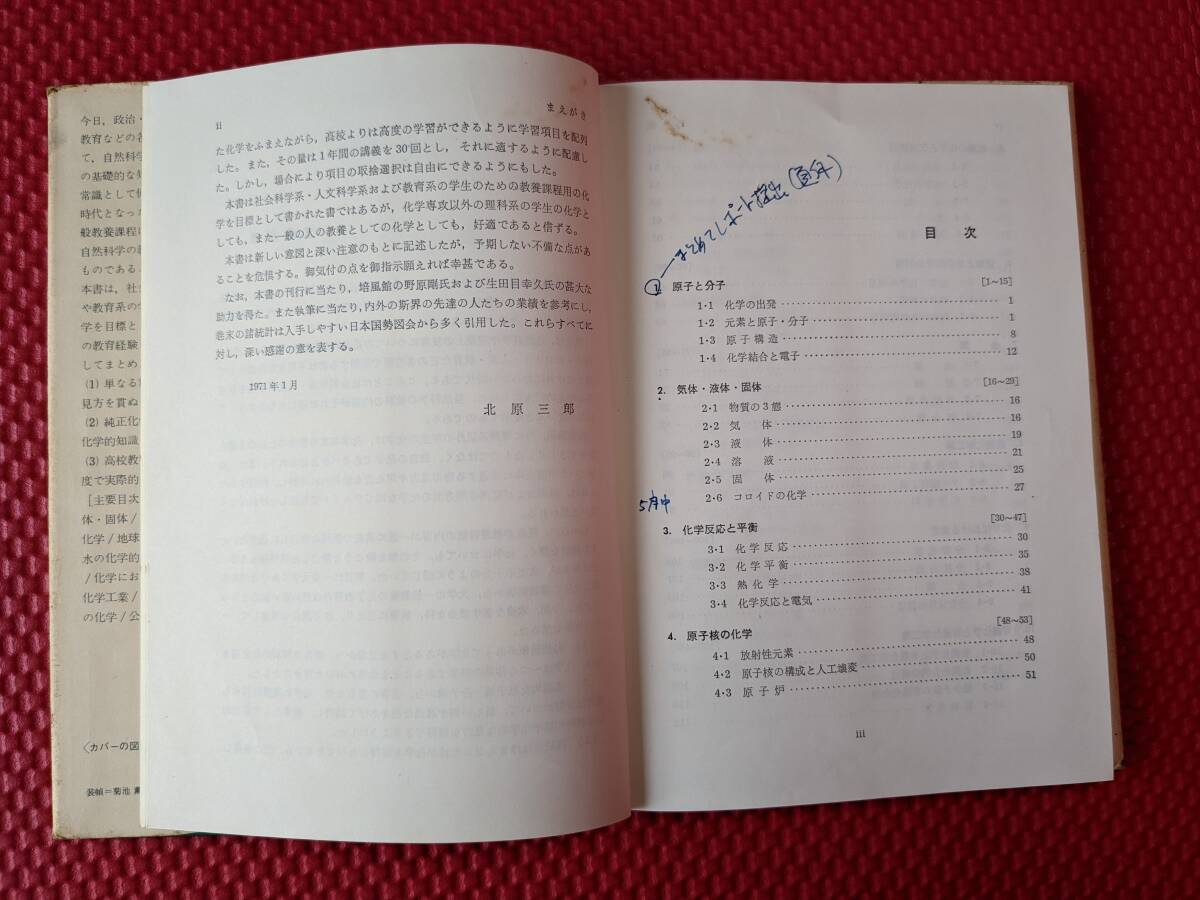 今日，政治・
教育などの各
て，自然科学
の基礎的な知
常識として
時代となった
般教養課程
自然科学の
ものである
本書は，社会
や教育系の
学を目標と
の教育経験
してまとめ
(1) 単なる
見方を貫ぬ
(2) 純正化学
化学的知識
(3) 高校教
度で実際的
[主要目次
体・固体/
化学/地球
水の化学的
/化学にお
化学工業/
の化学/公
〈カバーの図
装幀＝菊池
ii
まえがき
た化学をふまえながら，高校よりは高度の学習ができるように学習項目を配列
した。また，その量は1年間の講義を30回とし，それに適するように配慮し
た。しかし，場合により項目の取捨選択は自由にできるようにもした。
本書は社会科学系・人文科学系および教育系の学生のための教養課程用の化
学を目標として書かれた書ではあるが，化学専攻以外の理科系の学生の化学と
しても，また一般の人の教養としての化学としても，好適であると信ずる。
本書は新しい意図と深い注意のもとに記述したが，予期しない不備な点があ
ることを危惧する。御気付の点を御指示願えれば幸甚である。
なお，本書の刊行に当たり，培風館の野原剛氏および生田目幸久氏の甚大な
助力を得た。また執筆に当たり，内外の斯界の先達の人たちの業績を参考にし，
巻末の諸統計は入手しやすい日本国勢図会から多く引用した。これらすべてに
対し，深い感謝の意を表する。
1971年1月
北原三郎
まとめてレポート提出
目 次
1. 原子と分子 [1~15]
1・1 化学の出発 1
1・2 元素と原子・分子 1
1・3 原子構造 8
1・4 化学結合と電子 12
2. 気体・液体・固体 [16~29]
2・1 物質の3態 16
2・2 気 体 16
2・3 液 体 19
2・4 溶 液 21
2・5 固 体 25
2・6 コロイドの化学 27
5月中
3. 化学反応と平衡 [30~47]
3・1 化学反応 30
3・2 化学平衡 35
3・3 熱化学 38
3・4 化学反応と電気 41
4. 原子核の化学 [48~53]
4・1 放射性元素 48
4・2 原子核の構成と人工壊変 50
4・3 原子炉 51
iii